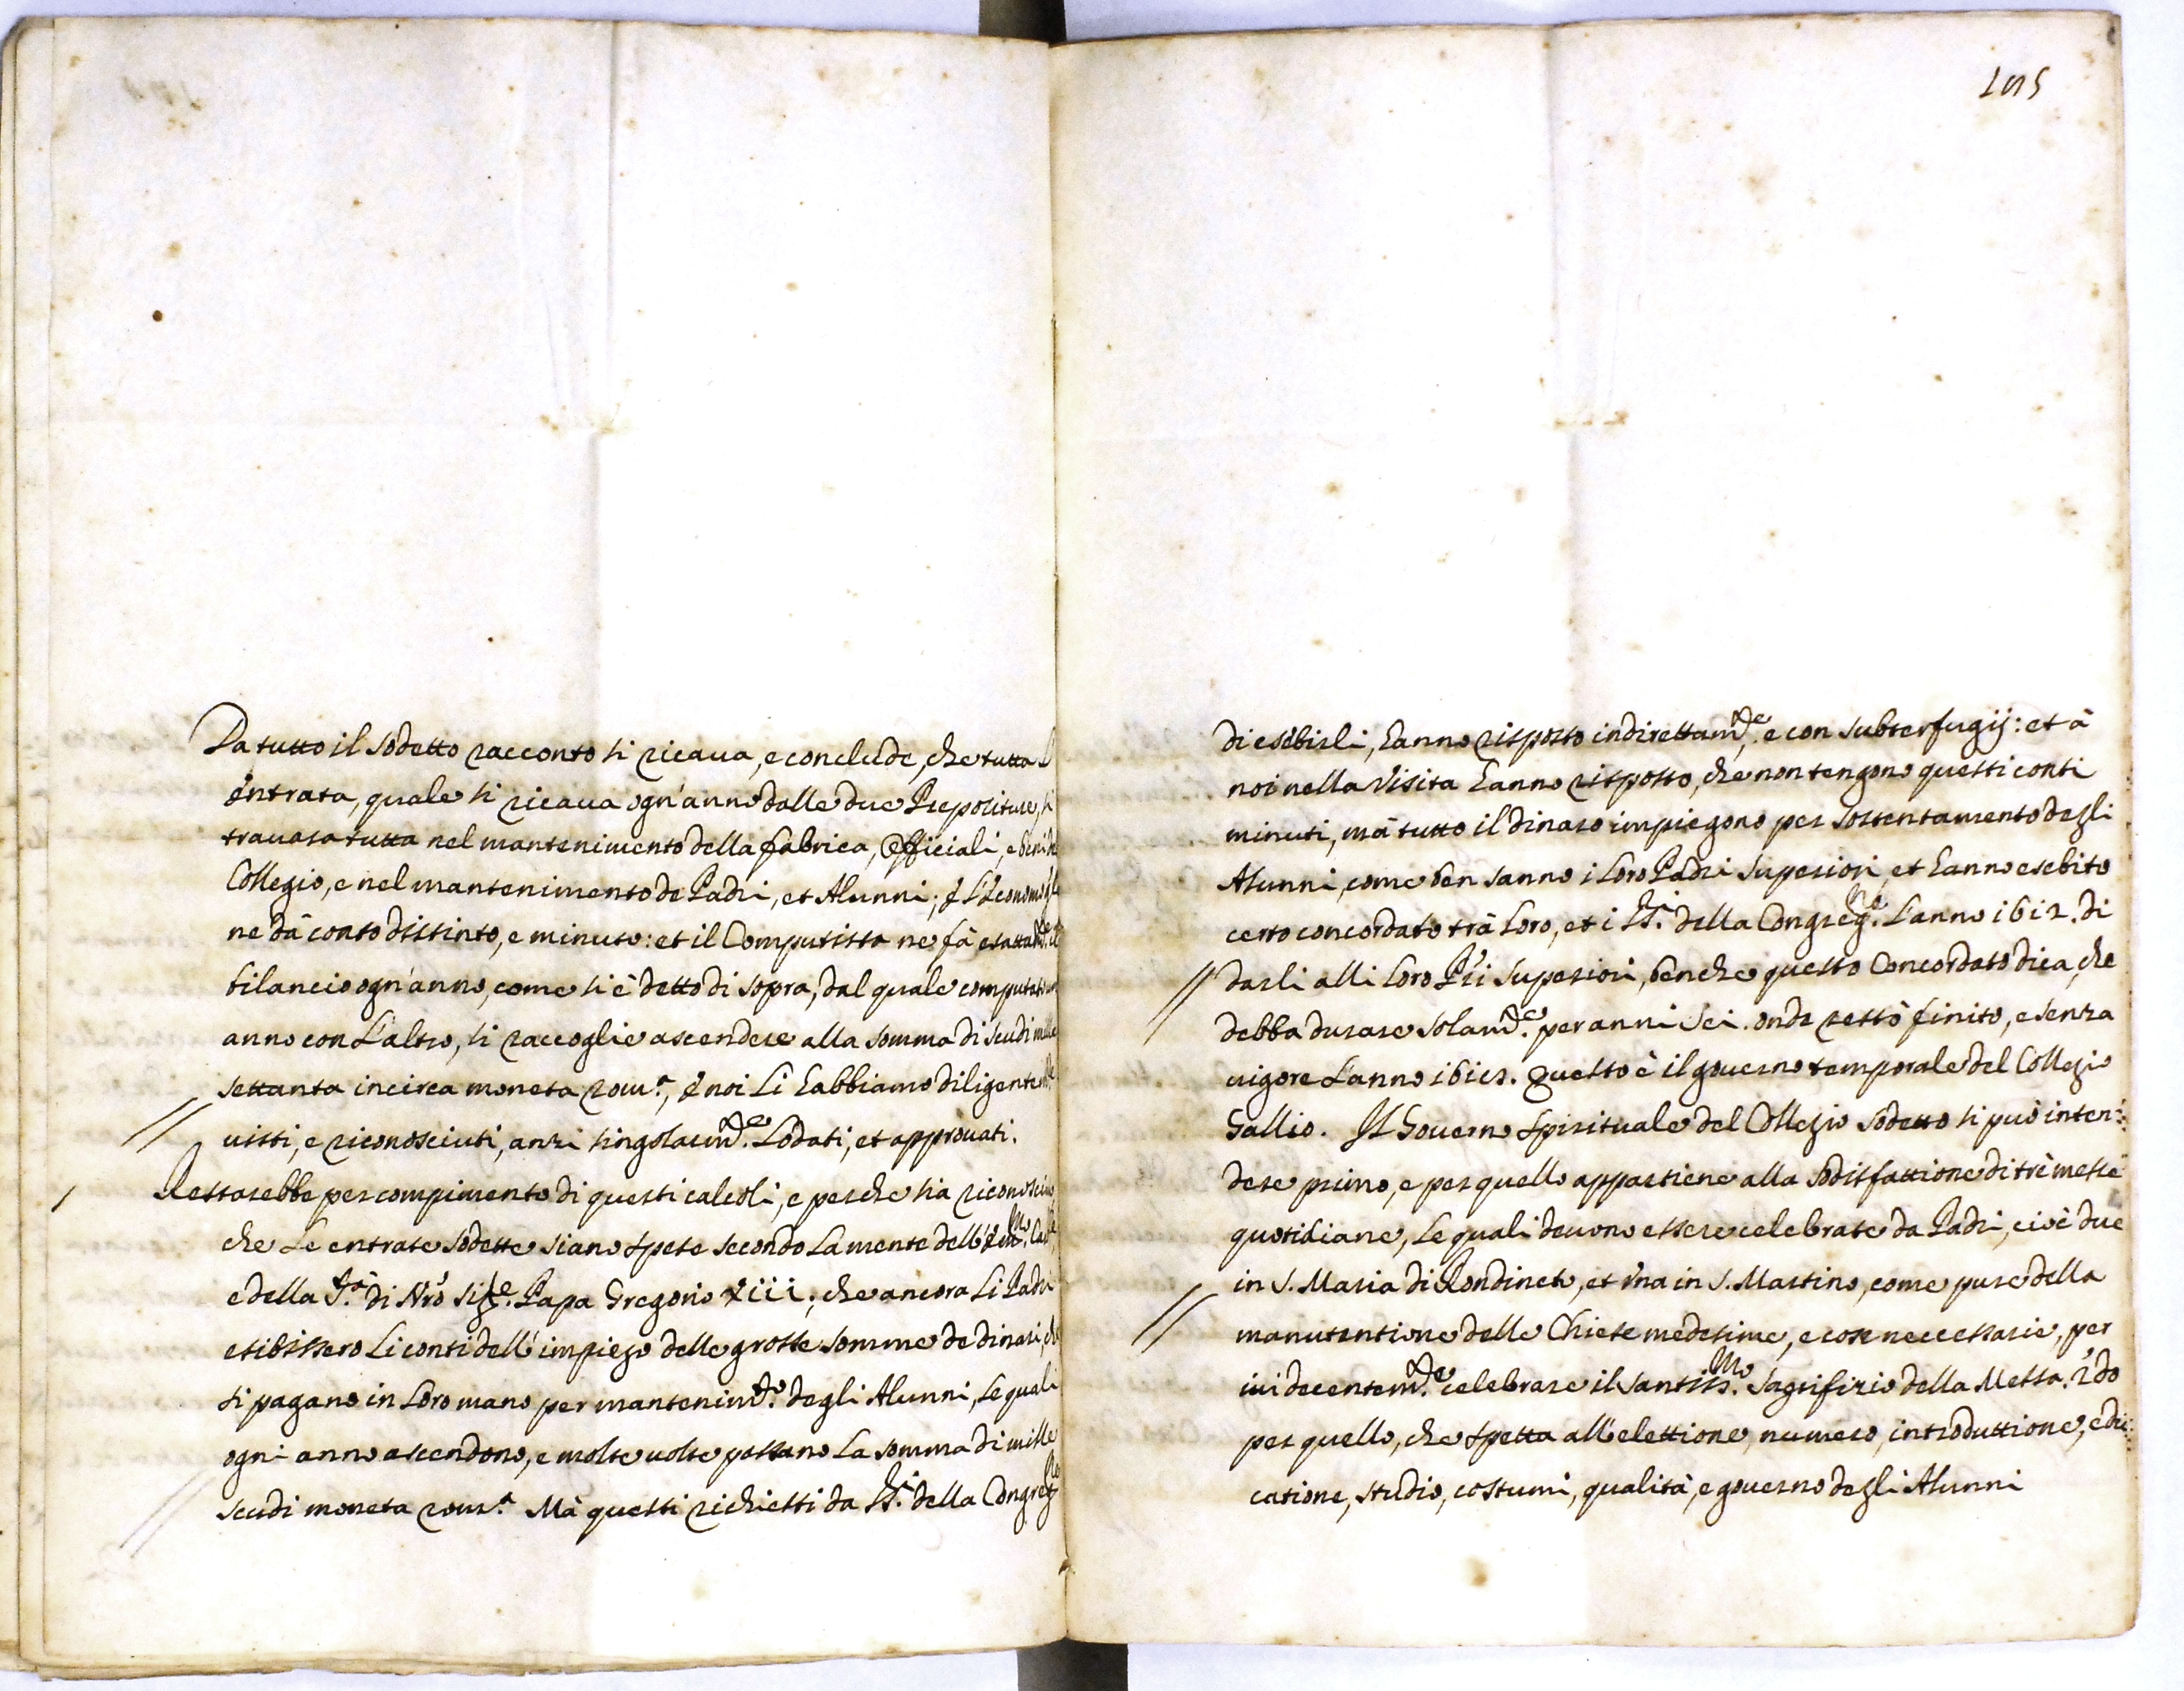 Da tutto il sodetto racconto si ricava, e conclude, che tutta L'
entrata, quale si ricaua ogn'anno dalle due Prepositure, si
trauasa tutta nel mantenimento della fabrica, Officiali, e beni del
Collegio, e nel mantenimento de Padri, et Alunni; è L'Economo
ne dà conto distinto, e minuto: et il Computista ne fà esattamte. il
bilancio ogn'anno, come si è detto di sopra, dal quale computato un
anno con L'altro, si raccoglie ascendere alla somma di scudi mille
settanta incirca moneta rom.a, è noi Li habbiamo diligentemte
uisti, e riconosciuti, anzi singolarmte. Lodati, et approuati.
Restarebbe per compimento di questi calcoli, e perche sia riconosciuto
che Le entrate sodette siano spese secondo La mente dell'Emmo. Card.le
e della S.tà di Nro' Sigre. Papa Gregorio Xiii., che ancora Li Padri
esibissero Li conti dell'impiego delle grosse somme de dinari, che
si pagano in Loro mano per mantenimto. degli Alunni, Le quali
ogni anno ascendono, e molte uolte passano La somma di mille
scudi moneta rom.a Mà questi richiesti da SS.ri della Congregne
di esibirli, hanno risposto indirettamte. e con subterfugij: et à
noi nella Visita hanno risposto, che non tengono questi conti
minuti, mà tutto il dinaro impiegono per sostentamento degli
Alunni, come ben sanno i Loro Padri Superiori, et hanno esebito
certo concordato trà Loro, et i SS.ri della Congregne. L'anno 1612. di
darli alli Loro Pri Superiori, benche questo Concordato dica, che
debba durare solamte. per anni sei. onde restò finito, e senza
uigore L'anno 1618. Questo è il gouerno temporale del Collegio
Gallio. Il Gouerno spirituale del Collegio sodetto si può inten:
dere primo, e per quello appartiene alla sodisfattione di trè messe
quotidiane, Le quali deuono essere celebrate da Padri, cioè due
in S. Maria di Rondineto, et una in S. Martino, come pure della
manutentione delle Chiese medesime, e cose neccessarie, per
iui decentemte. celebrare il Santissmo. Sagrifizio della Messa. 2do
per quello, che spetta all'elettione, numero, introduttione, edu:
catione, studio, costumi, qualità, e gouerno degli Alunni